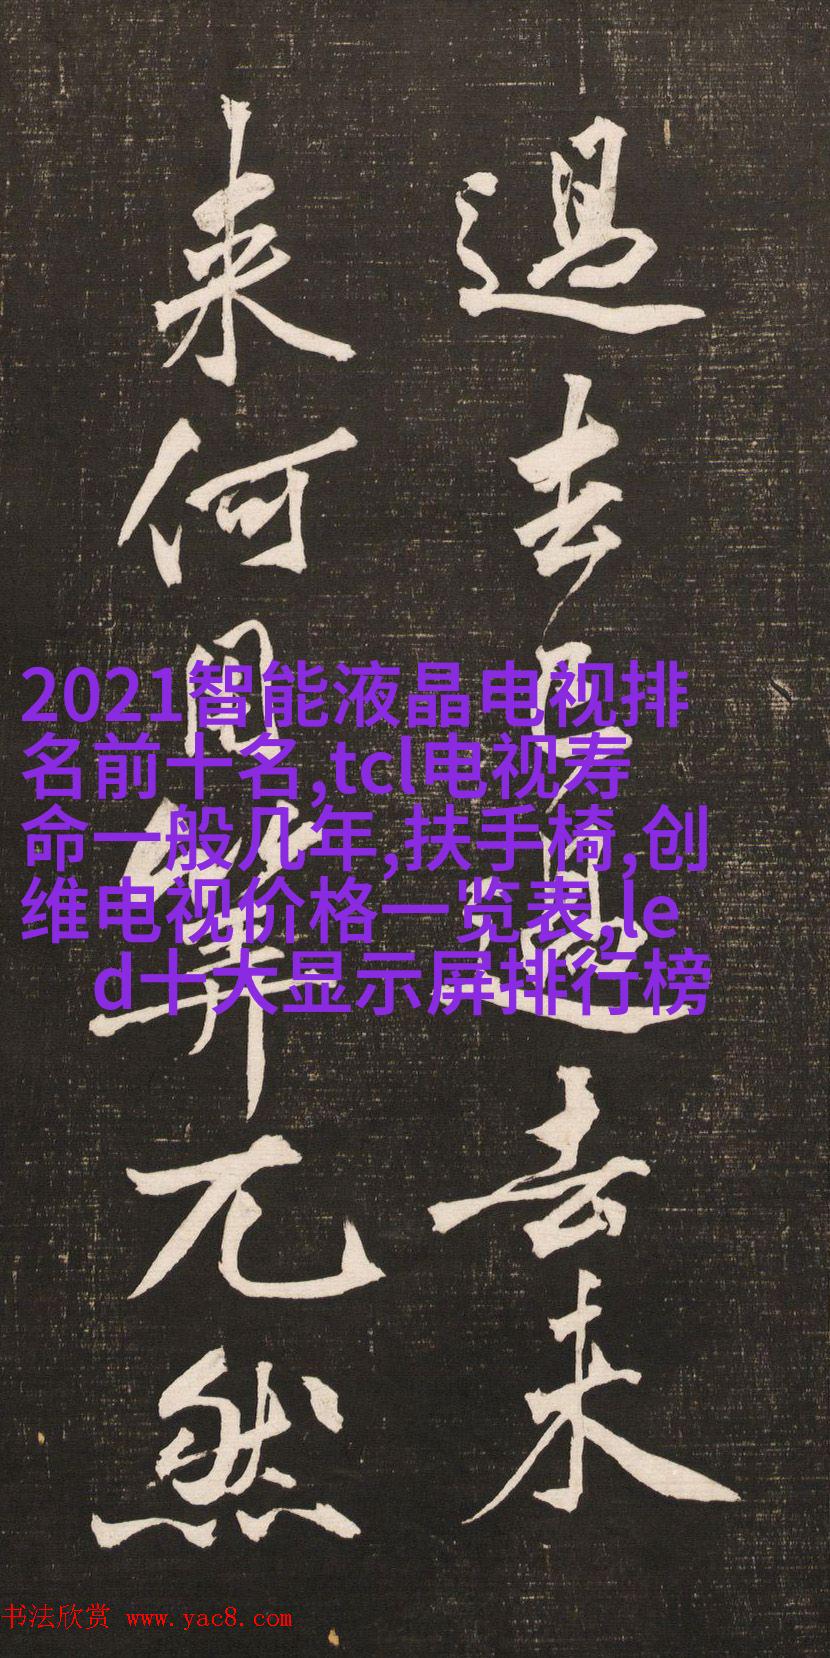 過去過去未
来何用筭兀然
2021智能液晶电视排
名前十名,tcl电视寿
命一般几年,扶手椅,创
维电视价格一览表,le
d十大显示屏排行榜
书法欣赏 www.yac8.com